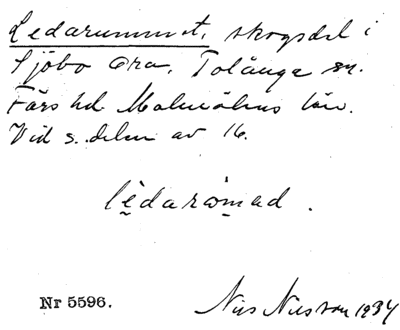 Ledarummet, skogsdel i
Sjöbo Ora, Tolånga sn.
Färs hd Malmöhus län.
Vid s. delen av 16.
lèdarωmad.
Nr 5596.
Nils Nilsson 1934